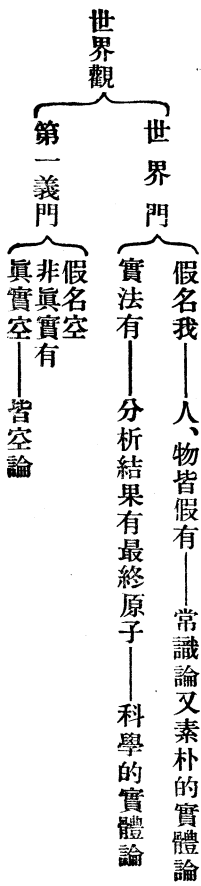 世界觀
世界門
假名我——人、物皆假有——常識論又素朴的實體論
實法有——分析結果有最終原子——科學的實體論
第一義門
假名空
非眞實有
眞實空——皆空論